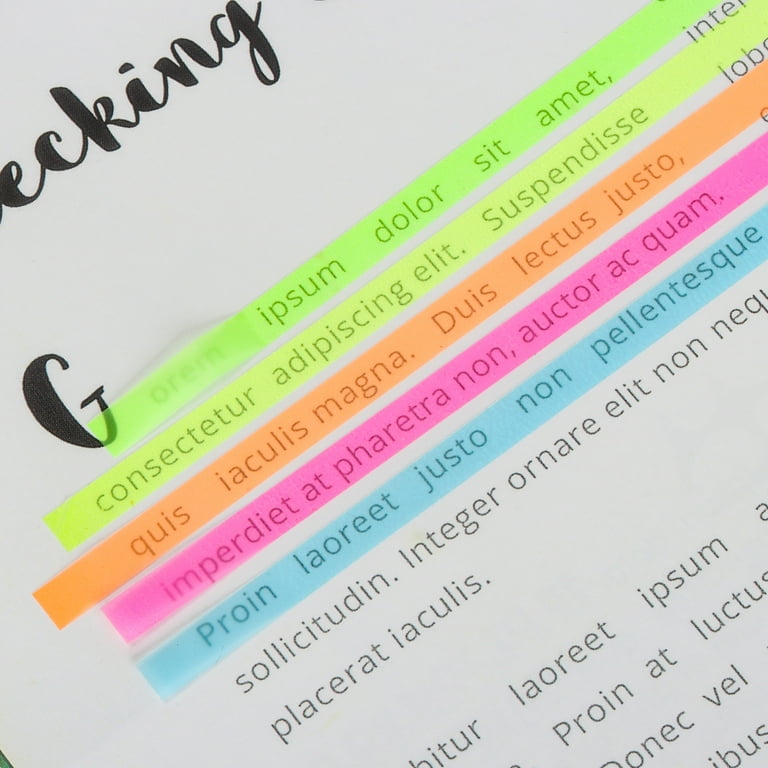 ecking
G orem ipsum dolor sit amet,
consectetur adipiscing elit. Suspendisse
quis iaculis magna. Duis lectus justo,
imperdiet at pharetra non, auctor ac quam.
Proin laoreet justo non pellentesque
sollicitudin. Integer ornare elit non
placerat iaculis.
laoreet ipsum
Proin at luctus
Donec vel